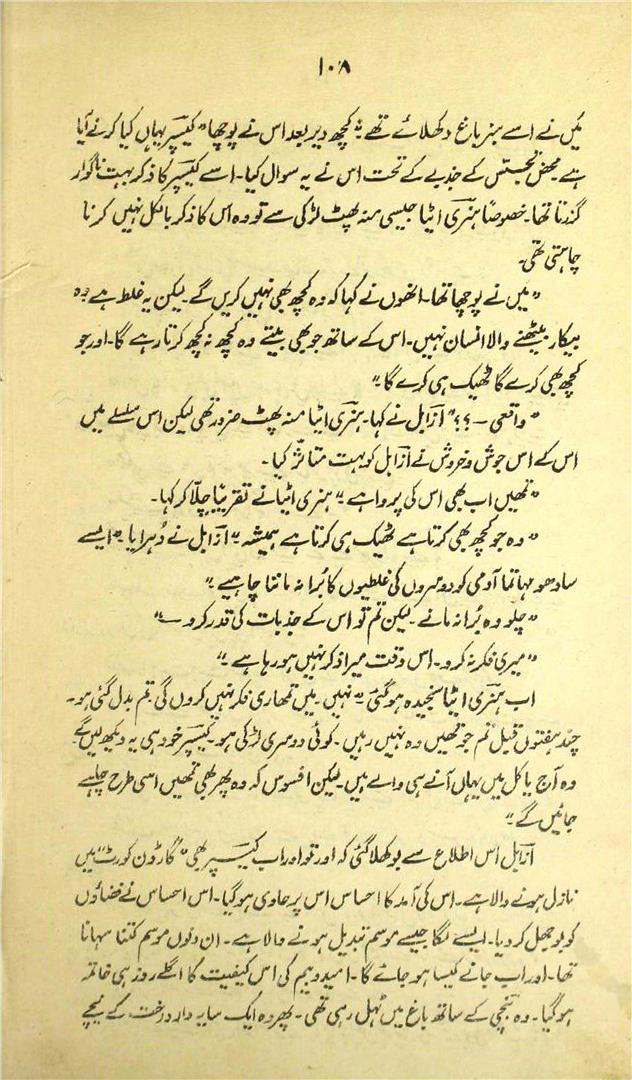 ۱۰۸
میں نے اسے سبز باغ دکھلائے تھے" کچھ دیر بعد اس نے پوچھا "کیسپر یہاں کیا کرنے آیا
ہے محض تجسّس کے جذبے کے تحت اس نے یہ سوال کیا۔ اسے کیسپر کا ذکر بہت ناگوار
گذرتا تھا۔ خصوصًا ہنری اٹیا جیسی منہ پھٹ لڑکی سے تو وہ اس کا ذکر بالکل نہیں کرنا
چاہتی تھی۔
"میں نے پوچھا تھا۔ انھوں نے کہا کہ وہ کچھ بھی نہیں کریں گے۔ لیکن یہ غلط ہے وہ
بیکار بیٹھنے والا انسان نہیں۔ اس کے ساتھ جو بھی بیتے وہ کچھ نہ کچھ کرتا رہے گا۔ اور جو
کچھ بھی کرے گا ٹھیک ہی کرے گا۔"
"واقعی —؟؟" ازابل نے کہا۔ ہنری اٹیا منہ پھٹ ضرور تھی لیکن اس سلسلے میں
اس کے اس جوش و خروش نے ازابل کو بہت متاثّر کیا۔
"تمھیں اب بھی اس کی پروا ہے" ہنری اٹیا نے تقریبًا چلّا کر کہا۔
"وہ جو کچھ بھی کرتا ہے ٹھیک ہی کرتا ہے ہمیشہ" ازابل نے دُہرایا۔ "ایسے
سادھو مہاتما آدمی کو دوسروں کی غلطیوں کا بُرا نہ ماننا چاہیے"
"چلو وہ بُرا نہ مانے۔ لیکن تم تو اس کے جذبات کی قدر کرو —"
"میری فکر نہ کرو۔ اس وقت میرا ذکر نہیں ہو رہا ہے"
اب ہنری اٹیا سنجیدہ ہو گئی "نہیں۔ میں تمھاری فکر نہیں کروں گی۔ تم بدل گئی ہو۔
چند ہفتوں قبل تم جو تھیں وہ نہیں رہیں۔ کوئی دوسری لڑکی ہو۔ کیسپر خود ہی یہ دیکھ لیں گے۔
وہ آج یا کل میں یہاں آنے ہی والے ہیں۔ لیکن افسوس کہ وہ پھر بھی تمھیں اسی طرح چاہے
جائیں گے"
ازابل اس اطلاع سے بوکھلا گئی کہ اور تو اور اب کیسپر بھی "گارڈن کورٹ" میں
نازل ہونے والا ہے۔ اس کی آمد کا احساس اس پر حاوی ہو گیا۔ اس احساس نے فضاؤں
کو بوجھل کر دیا۔ ایسے لگا جیسے موسم تبدیل ہونے والا ہے۔ ان دنوں موسم کتنا سہانا
تھا۔ اور اب جانے کیسا ہو جائے گا۔ امید و بیم کی اس کیفیت کا اگلے روز ہی خاتمہ
ہو گیا۔ وہ بنچی کے ساتھ باغ میں ٹہل رہی تھی۔ پھر وہ ایک سایہ دار درخت کے نیچے